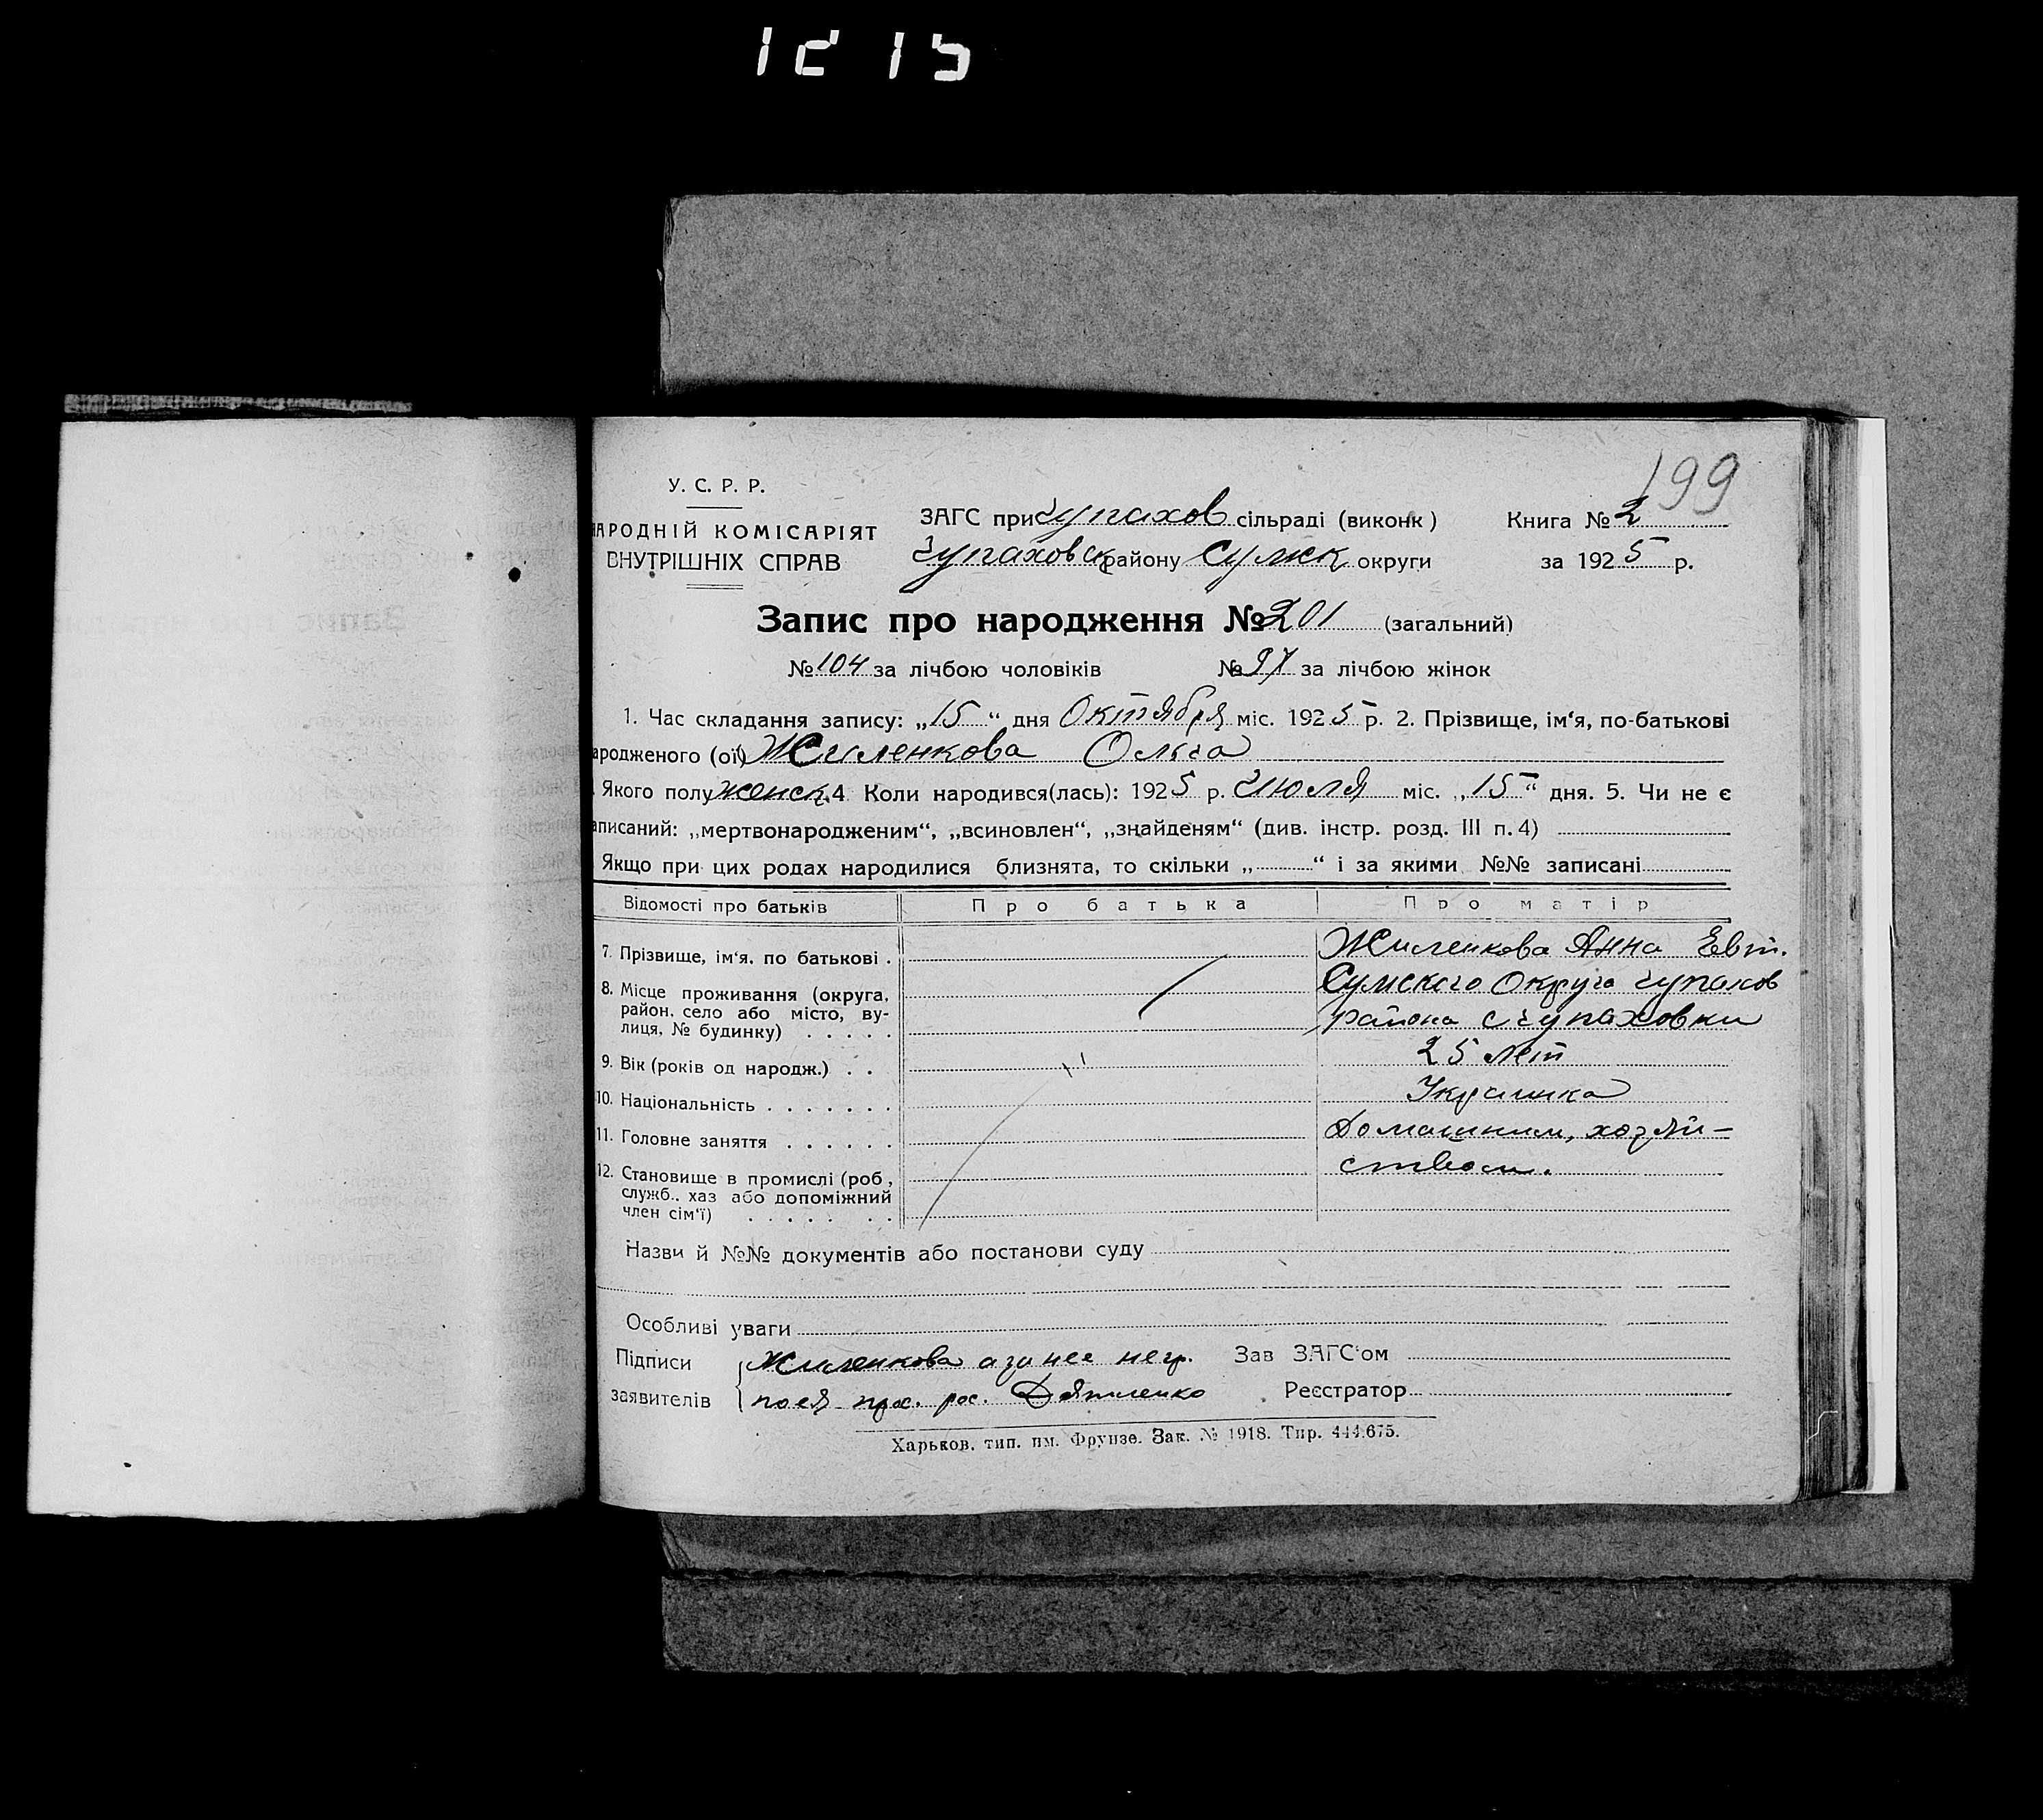 1215
199
У. С. Р. Р.
НАРОДНІЙ КОМІСАРІЯТ
ВНУТРІШНІХ СПРАВ
ЗАГС при Чупахов сільраді (виконк)
Чупаховск району Сумск округи
Книга № 2
за 1925 р.
Запис про народження № 201 (загальний)
№ 104 за лічбою чоловіків № 97 за лічбою жінок
1. Час складання запису: „15“ дня Октября міс. 1925 р. 2. Прізвище, ім‘я, по-батькові
ародженого (ої) Жиленкова Ольга
Якого полу женск 4 Коли народився(лась): 1925 р. Июля міс. „15“ дня. 5. Чи не є
аписаний: „мертвонародженим“, „всиновлен“, „знайденям“ (див. інстр. розд. III п. 4)
Якщо при цих родах народилися близнята, то скільки „ “ і за якими №№ записані
Відомості про батьків Про батька Про матір
7. Прізвище, ім‘я, по батькові . Жиленкова Анна Евт.
8. Місце проживання (округа, Сумского Округа Чупахов
район, село або місто, ву-
лиця, № будинку) . . . . . района с Чупаховки
9. Вік (років од народж.) . . 25 лет
10. Національність . . . . . . . Украинка
11. Головне заняття . . . . . . Домашним, хозяй-
ством.
12. Становище в промислі (роб,
служб., хаз або допоміжний
член сім‘ї) . . . . . . .
Назви й №№ документів або постанови суду
Особливі уваги
Підписи Жиленкова а за нее негр. Зав ЗАГС‘ом
заявителів по ея рос. Дятленко Реєстратор
Харьков. тип. им. Фрунзе. Зак. № 1918. Тир. 444.675.